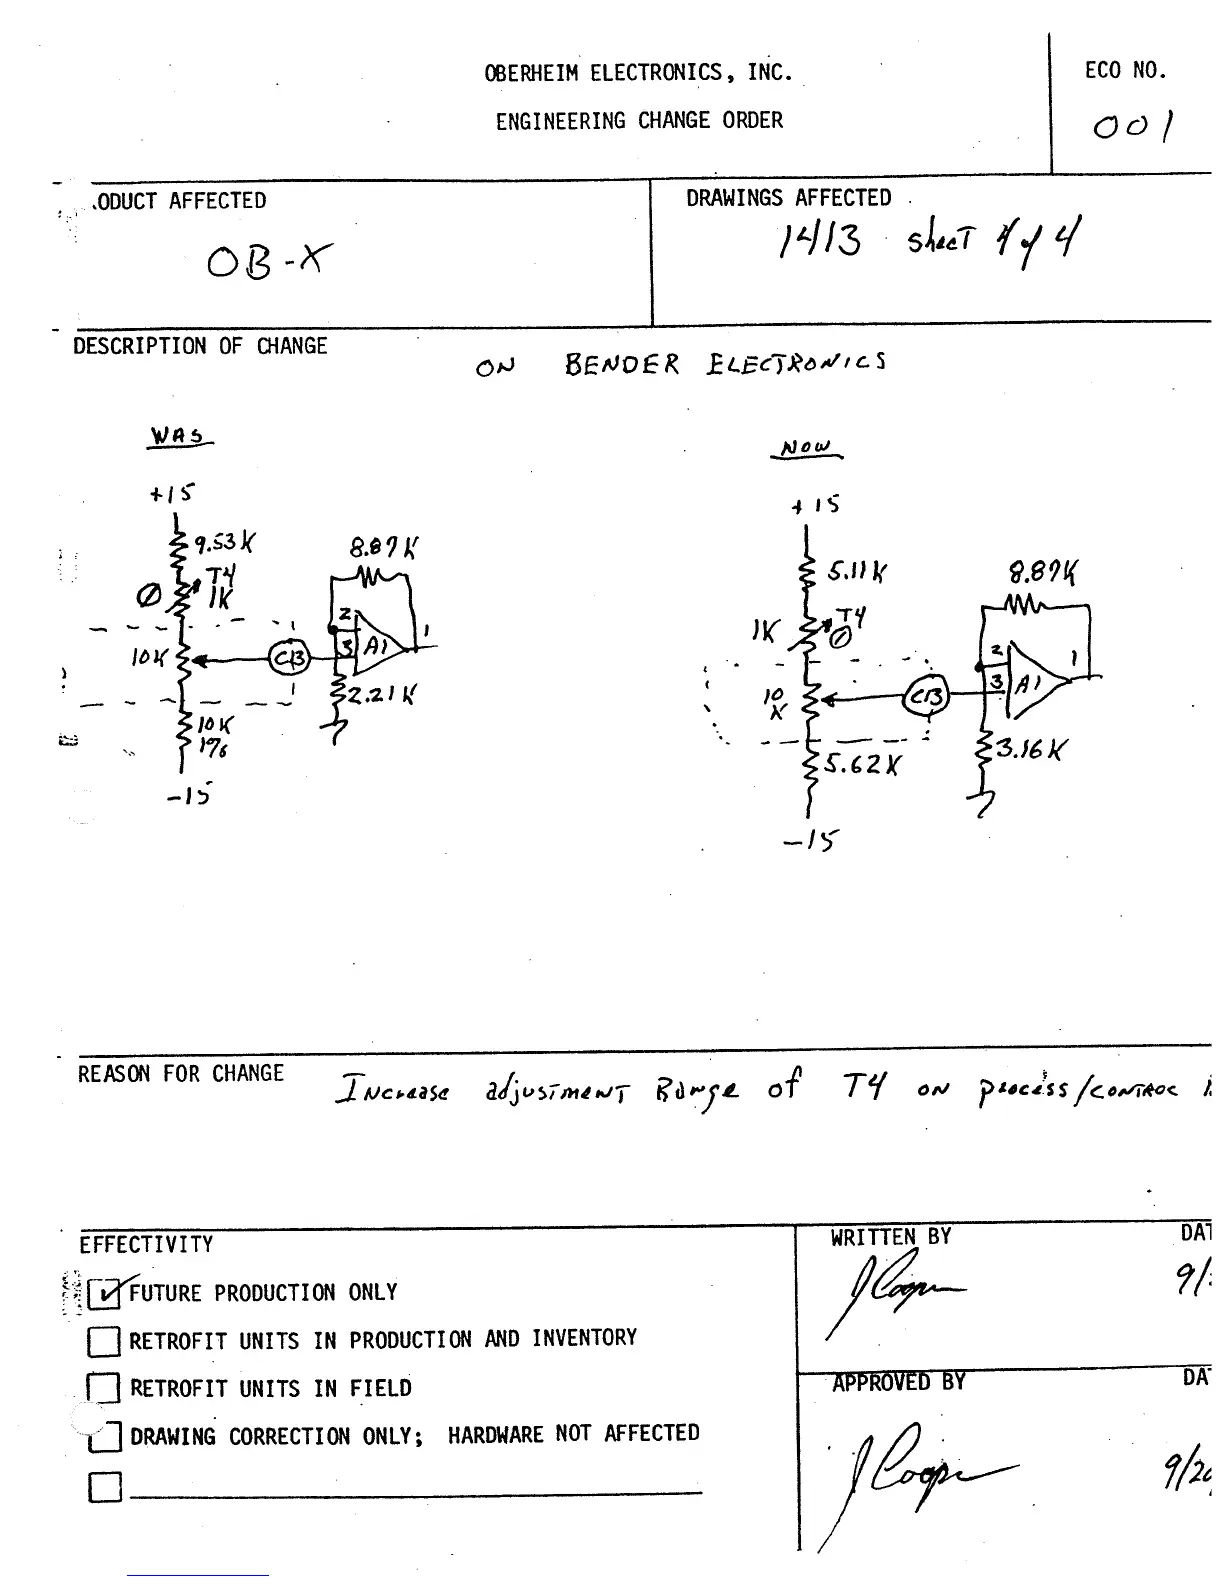 OBERHEIM ELECTRONICS, INC.
ENGINEERING CHANGE ORDER
ECO NO.
001
.ODUCT AFFECTED
OB-X
DRAWINGS AFFECTED
1413 sheeT 4 of 4
DESCRIPTION OF CHANGE
ON BENDER ELECTRONICS
WAS
+15
9.53K
T4
1K
Ø
10K
CB
8.87K
2
3
A1
1
2.21K
10K
1%
-15
NOW
+15
5.11K
1K
T4
Ø
10
K
CB
8.87K
2
3
A1
1
3.16K
5.62K
-15
REASON FOR CHANGE
Increase adjusTmenT Range of T4 on process/conTROL
EFFECTIVITY
FUTURE PRODUCTION ONLY
RETROFIT UNITS IN PRODUCTION AND INVENTORY
RETROFIT UNITS IN FIELD
DRAWING CORRECTION ONLY; HARDWARE NOT AFFECTED
WRITTEN BY
DAT
J Cooper
9/
APPROVED BY
DA
J Cooper
9/20